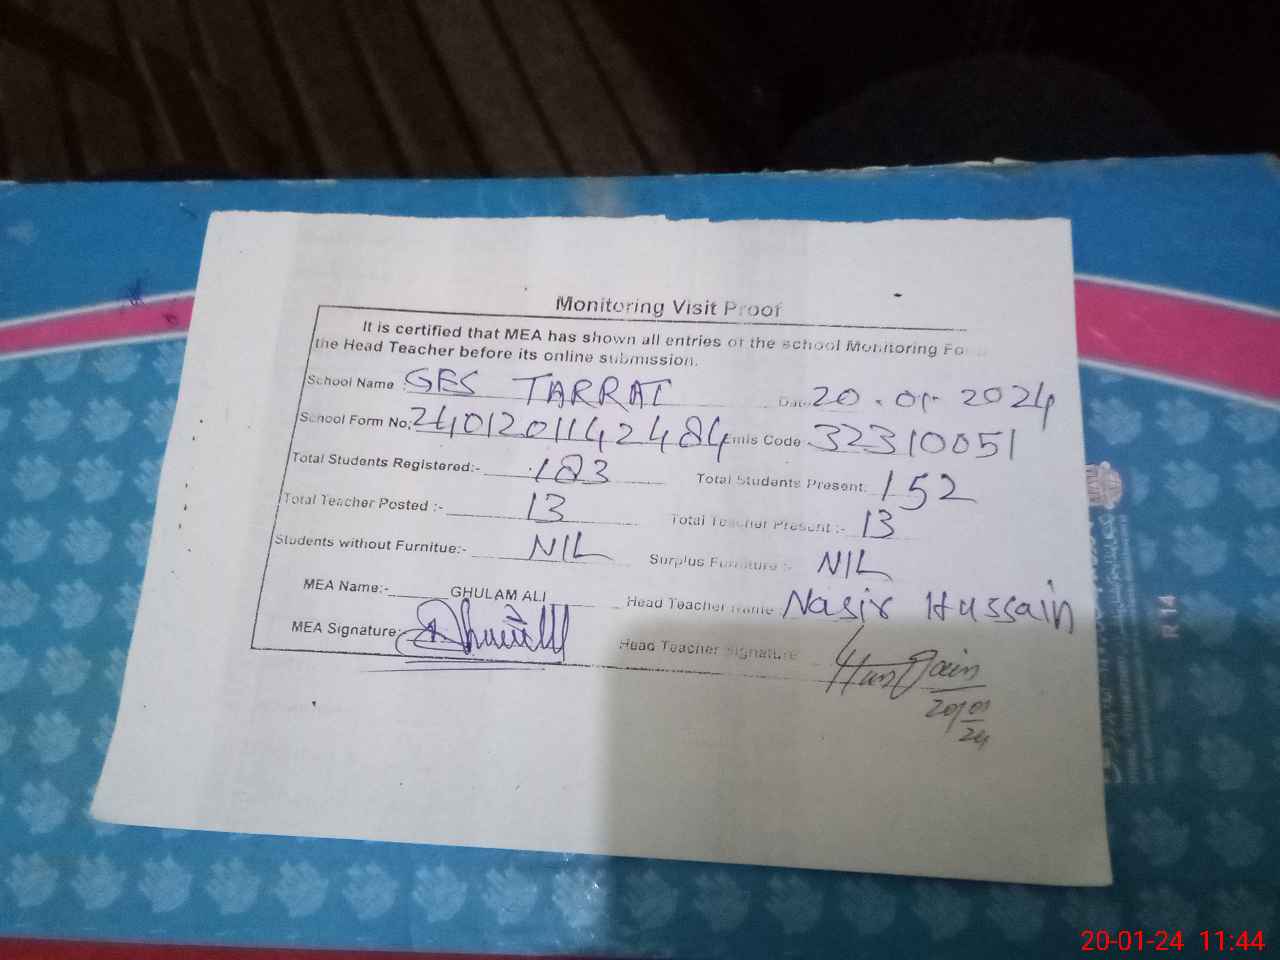 Monitoring Visit Proof
It is certified that MEA has shown all entries of the school Monitoring Fo
the Head Teacher before its online submission.
School Name GES TARRAT Date 20.01.2024
School Form No; 2401201142484 Emis Code 32310051
Total Students Registered:- 183 Total Students Present: 152
Total Teacher Posted :- 13 Total Teacher Present :- 13
Students without Furnitue:- NIL Surplus Furniture :- NIL
MEA Name:- GHULAM ALI Head Teacher Name : Nasir Hussain
MEA Signature: Head Teacher Signature Hussain
20/01/24
R14
20-01-24 11:44